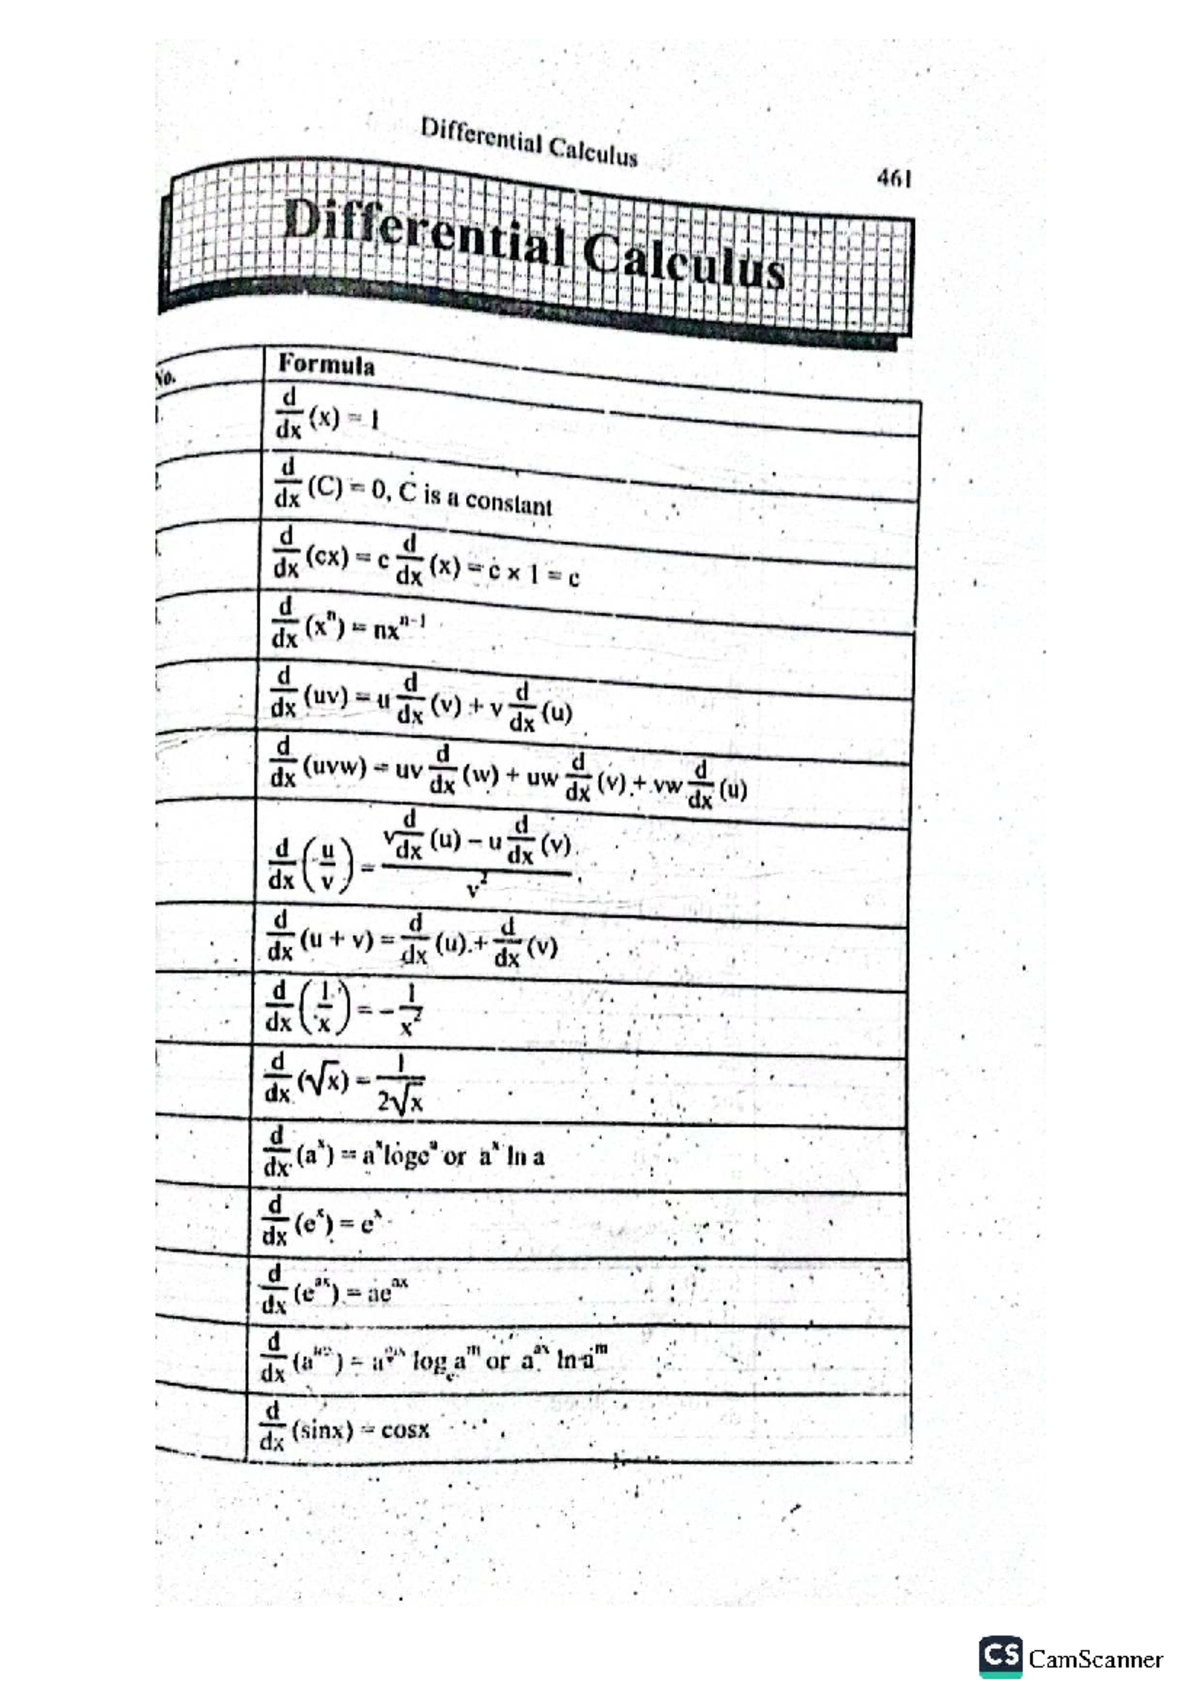 Differential Calculus
461
Differential Calculus
No. Formula
1. d/dx (x) = 1
2. d/dx (C) = 0, C is a constant
d/dx (cx) = c d/dx (x) = c × 1 = c
d/dx (xⁿ) = nxⁿ⁻¹
d/dx (uv) = u d/dx (v) + v d/dx (u)
d/dx (uvw) = uv d/dx (w) + uw d/dx (v) + vw d/dx (u)
d/dx (u/v) = (v d/dx (u) − u d/dx (v)) / v²
d/dx (u + v) = d/dx (u) + d/dx (v)
d/dx (1/x) = − 1/x²
d/dx (√x) = 1/(2√x)
d/dx (aˣ) = aˣ logeᵃ or aˣ ln a
d/dx (eˣ) = eˣ
d/dx (eᵃˣ) = aeᵃˣ
d/dx (a ) = a logₑ aᵐ or aᵃˣ ln aᵐ
d/dx (sinx) = cosx
CS CamScanner